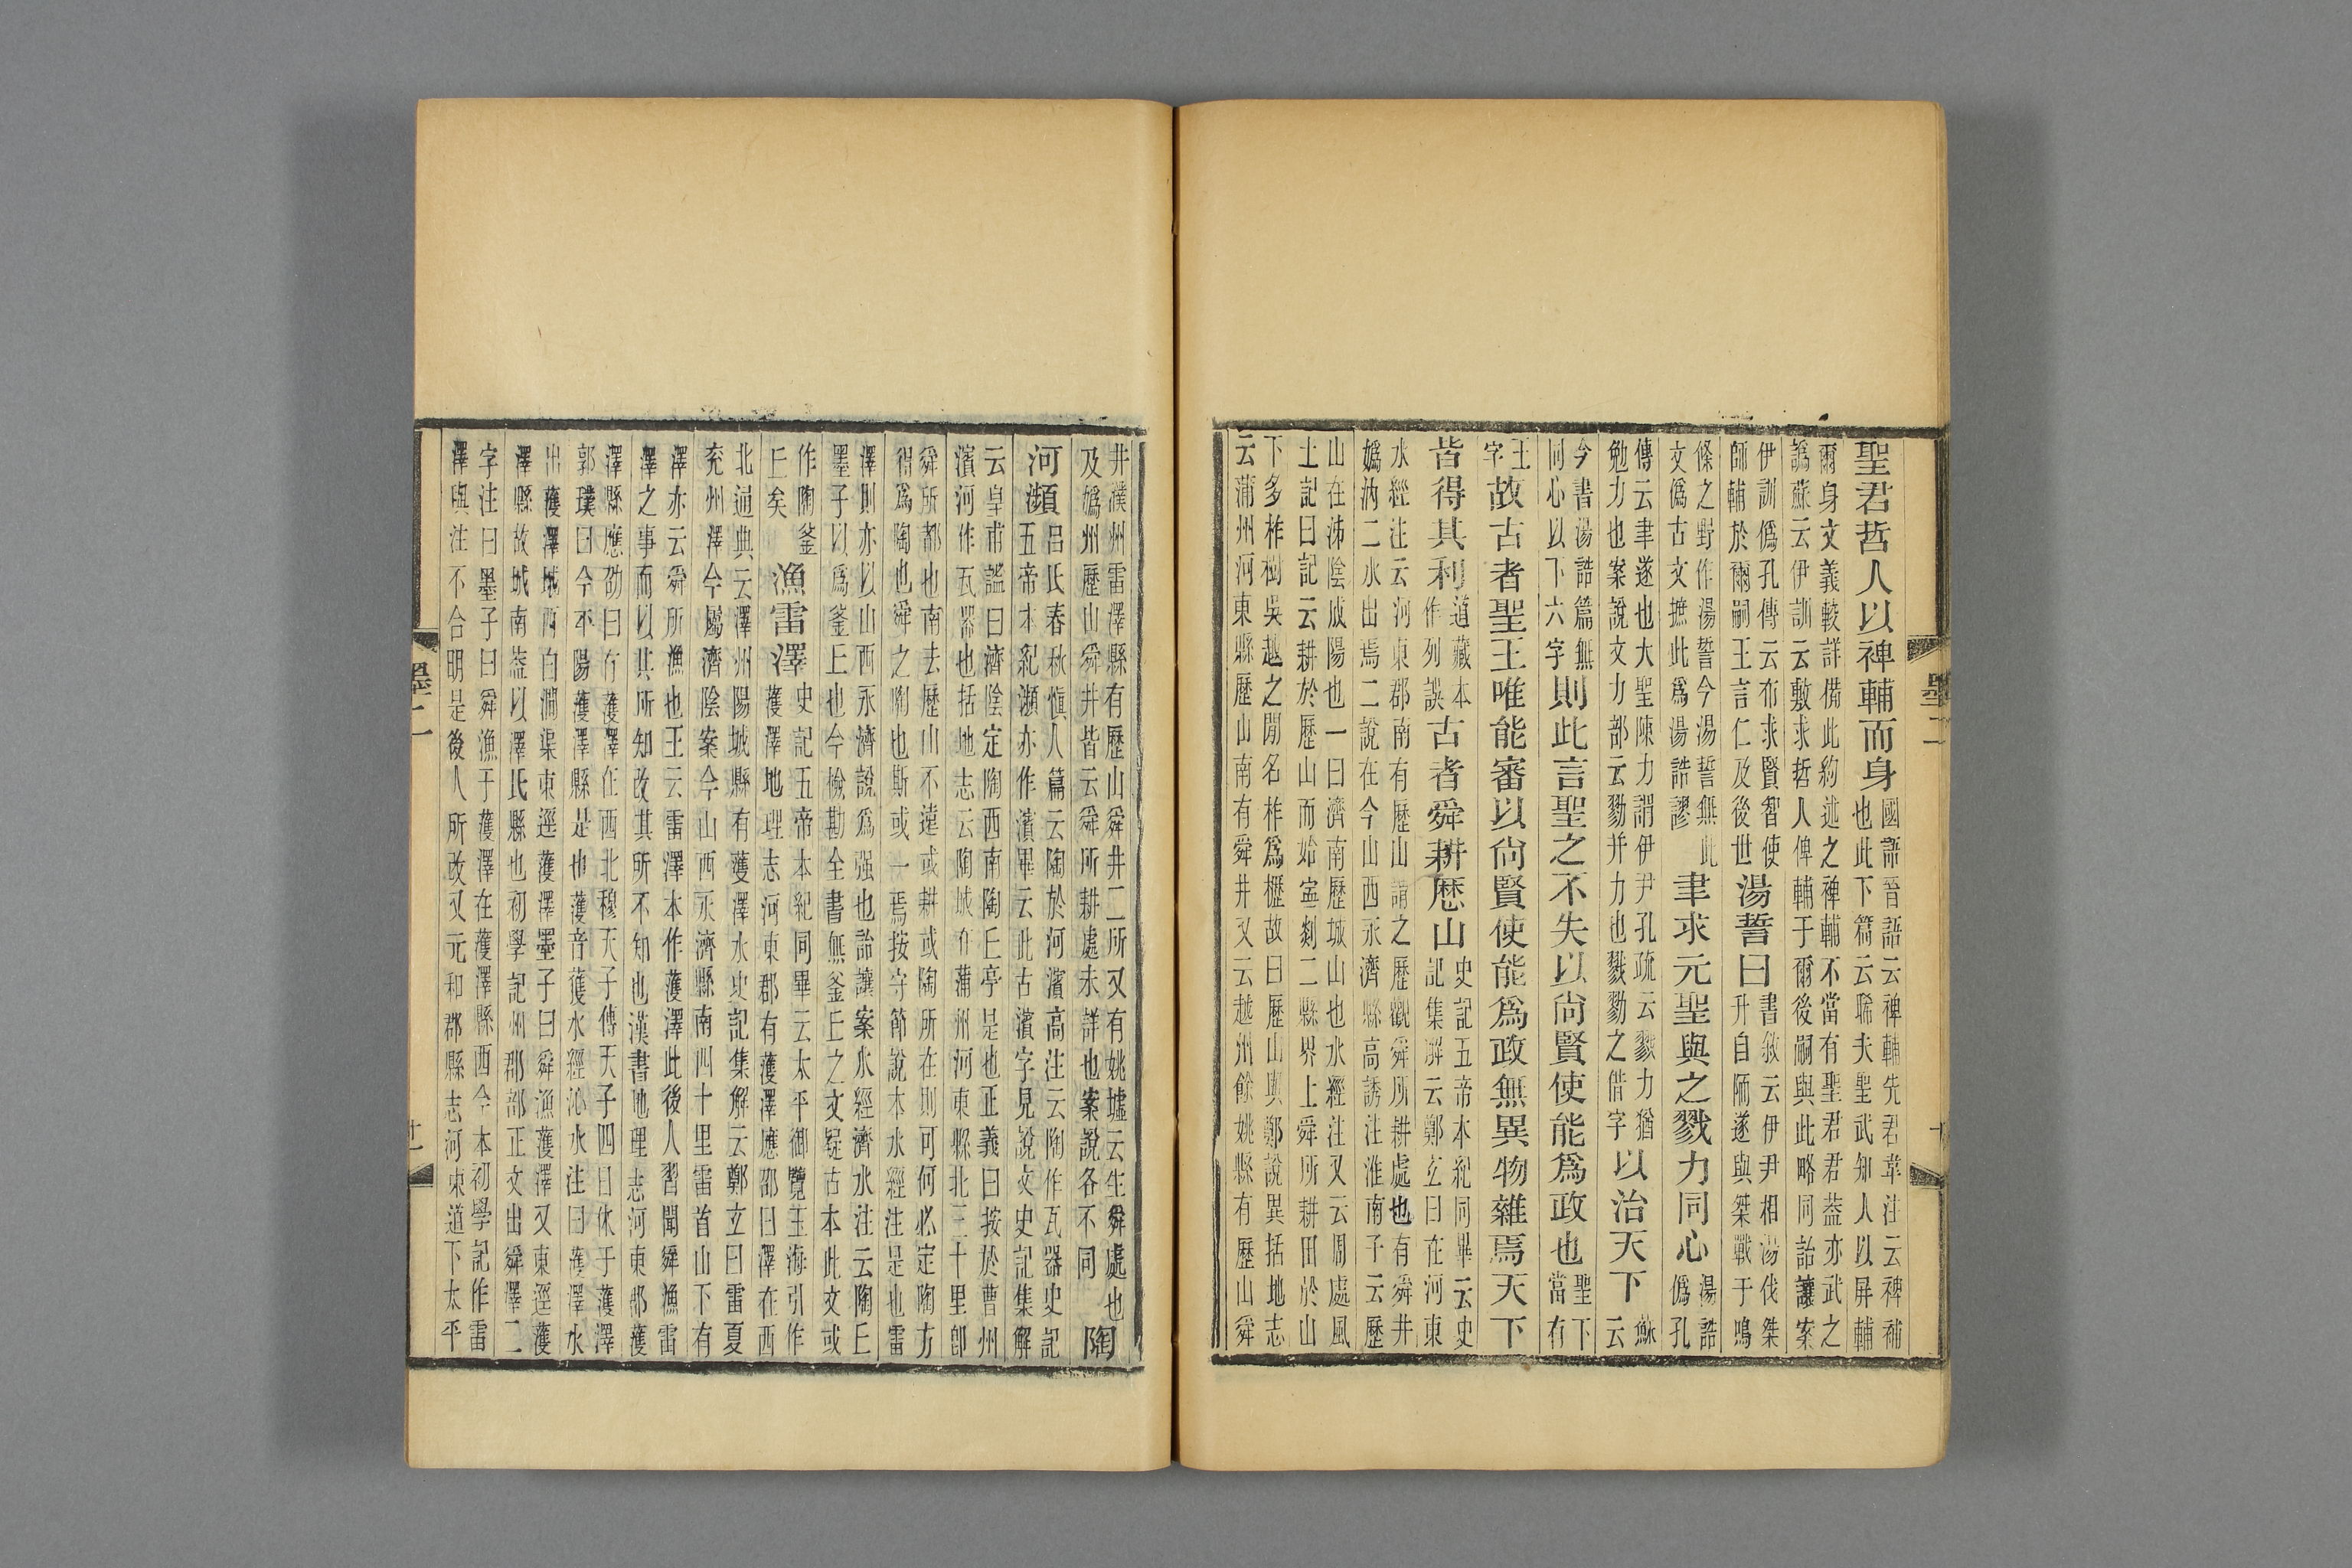 墨二
聖君哲人以裨輔而身
國語晉語云裨輔先君韋注云裨補
也此下篇云晞夫聖武知人以屏輔
爾身文義較詳備此約述之裨輔不當有聖君君蓋亦武之
譌蘇云伊訓云敷求哲人俾輔于爾後嗣與此略同詒讓案
伊訓僞孔傳云布求賢智使
師輔於爾嗣王言仁及後世
湯誓曰
書敘云伊尹相湯伐桀
升自陑遂與桀戰于鳴
條之野作湯誓今湯誓無此
文僞古文摭此爲湯誥謬
聿求元聖與之戮力同心
湯誥
僞孔
傳云聿遂也大聖陳力謂伊尹孔疏云戮力猶
勉力也案說文力部云勠并力也戮勠之借字
以治天下
蘇
云
今書湯誥篇無
同心以下六字
則此言聖之不失以尚賢使能爲政也
聖下
當有
王
字
故古者聖王唯能審以尚賢使能爲政無異物雜焉天下
皆得其利
道藏本
作列誤
古者舜耕歷山
史記五帝本紀同畢云史
記集解云鄭玄曰在河東
水經注云河東郡南有歷山謂之歷觀舜所耕處也有舜井
嬀汭二水出焉二說在今山西永濟縣高誘注淮南子云歷
山在泲陰成陽也一曰濟南歷城山也水經注又云周處風
土記曰記云耕於歷山而始寧剡二縣界上舜所耕田於山
下多柞樹吳越之閒名柞爲櫪故曰歷山與鄭說異括地志
云蒲州河東縣歷山南有舜井又云越州餘姚縣有歷山舜
井濮州雷澤縣有歷山舜井二所又有姚墟云生舜處也
及嬀州歷山舜井皆云舜所耕處未詳也案說各不同
陶
河瀕
呂氏春秋愼人篇云陶於河濱高注云陶作瓦器史記
五帝本紀瀕亦作濱畢云此古濱字見說文史記集解
云皇甫謐曰濟陰定陶西南陶丘亭是也正義曰按於曹州
濱河作瓦器也括地志云陶城在蒲州河東縣北三十里卽
舜所都也南去歷山不遠或耕或陶所在則可何必定陶方
得爲陶也舜之陶也斯或一焉按守節說本水經注是也雷
澤則亦以山西永濟說爲强也詒讓案水經濟水注云陶丘
墨子以爲釜丘也今檢勘全書無釜丘之文疑古本此文或
作陶釜
丘矣
漁雷澤
史記五帝本紀同畢云太平御覽玉海引作
濩澤地理志河東郡有濩澤應邵曰澤在西
北通典云澤州陽城縣有濩澤水史記集解云鄭玄曰雷夏
兖州澤今屬濟陰案今山西永濟縣南四十里雷首山下有
澤亦云舜所漁也王云雷澤本作濩澤此後人習聞舜漁雷
澤之事而以其所知改其所不知也漢書地理志河東郡濩
澤縣應劭曰有濩澤在西北穆天子傳天子四日休于濩澤
郭璞曰今平陽濩澤縣是也濩音穫水經沁水注曰濩澤水
出濩澤城西白澗渠東逕濩澤墨子曰舜漁濩澤又東逕濩
澤縣故城南蓋以澤氏縣也初學記州郡部正文出舜澤二
字注曰墨子曰舜漁于濩澤在濩澤縣西今本初學記作雷
澤與注不合明是後人所改又元和郡縣志河東道下太平
墨二